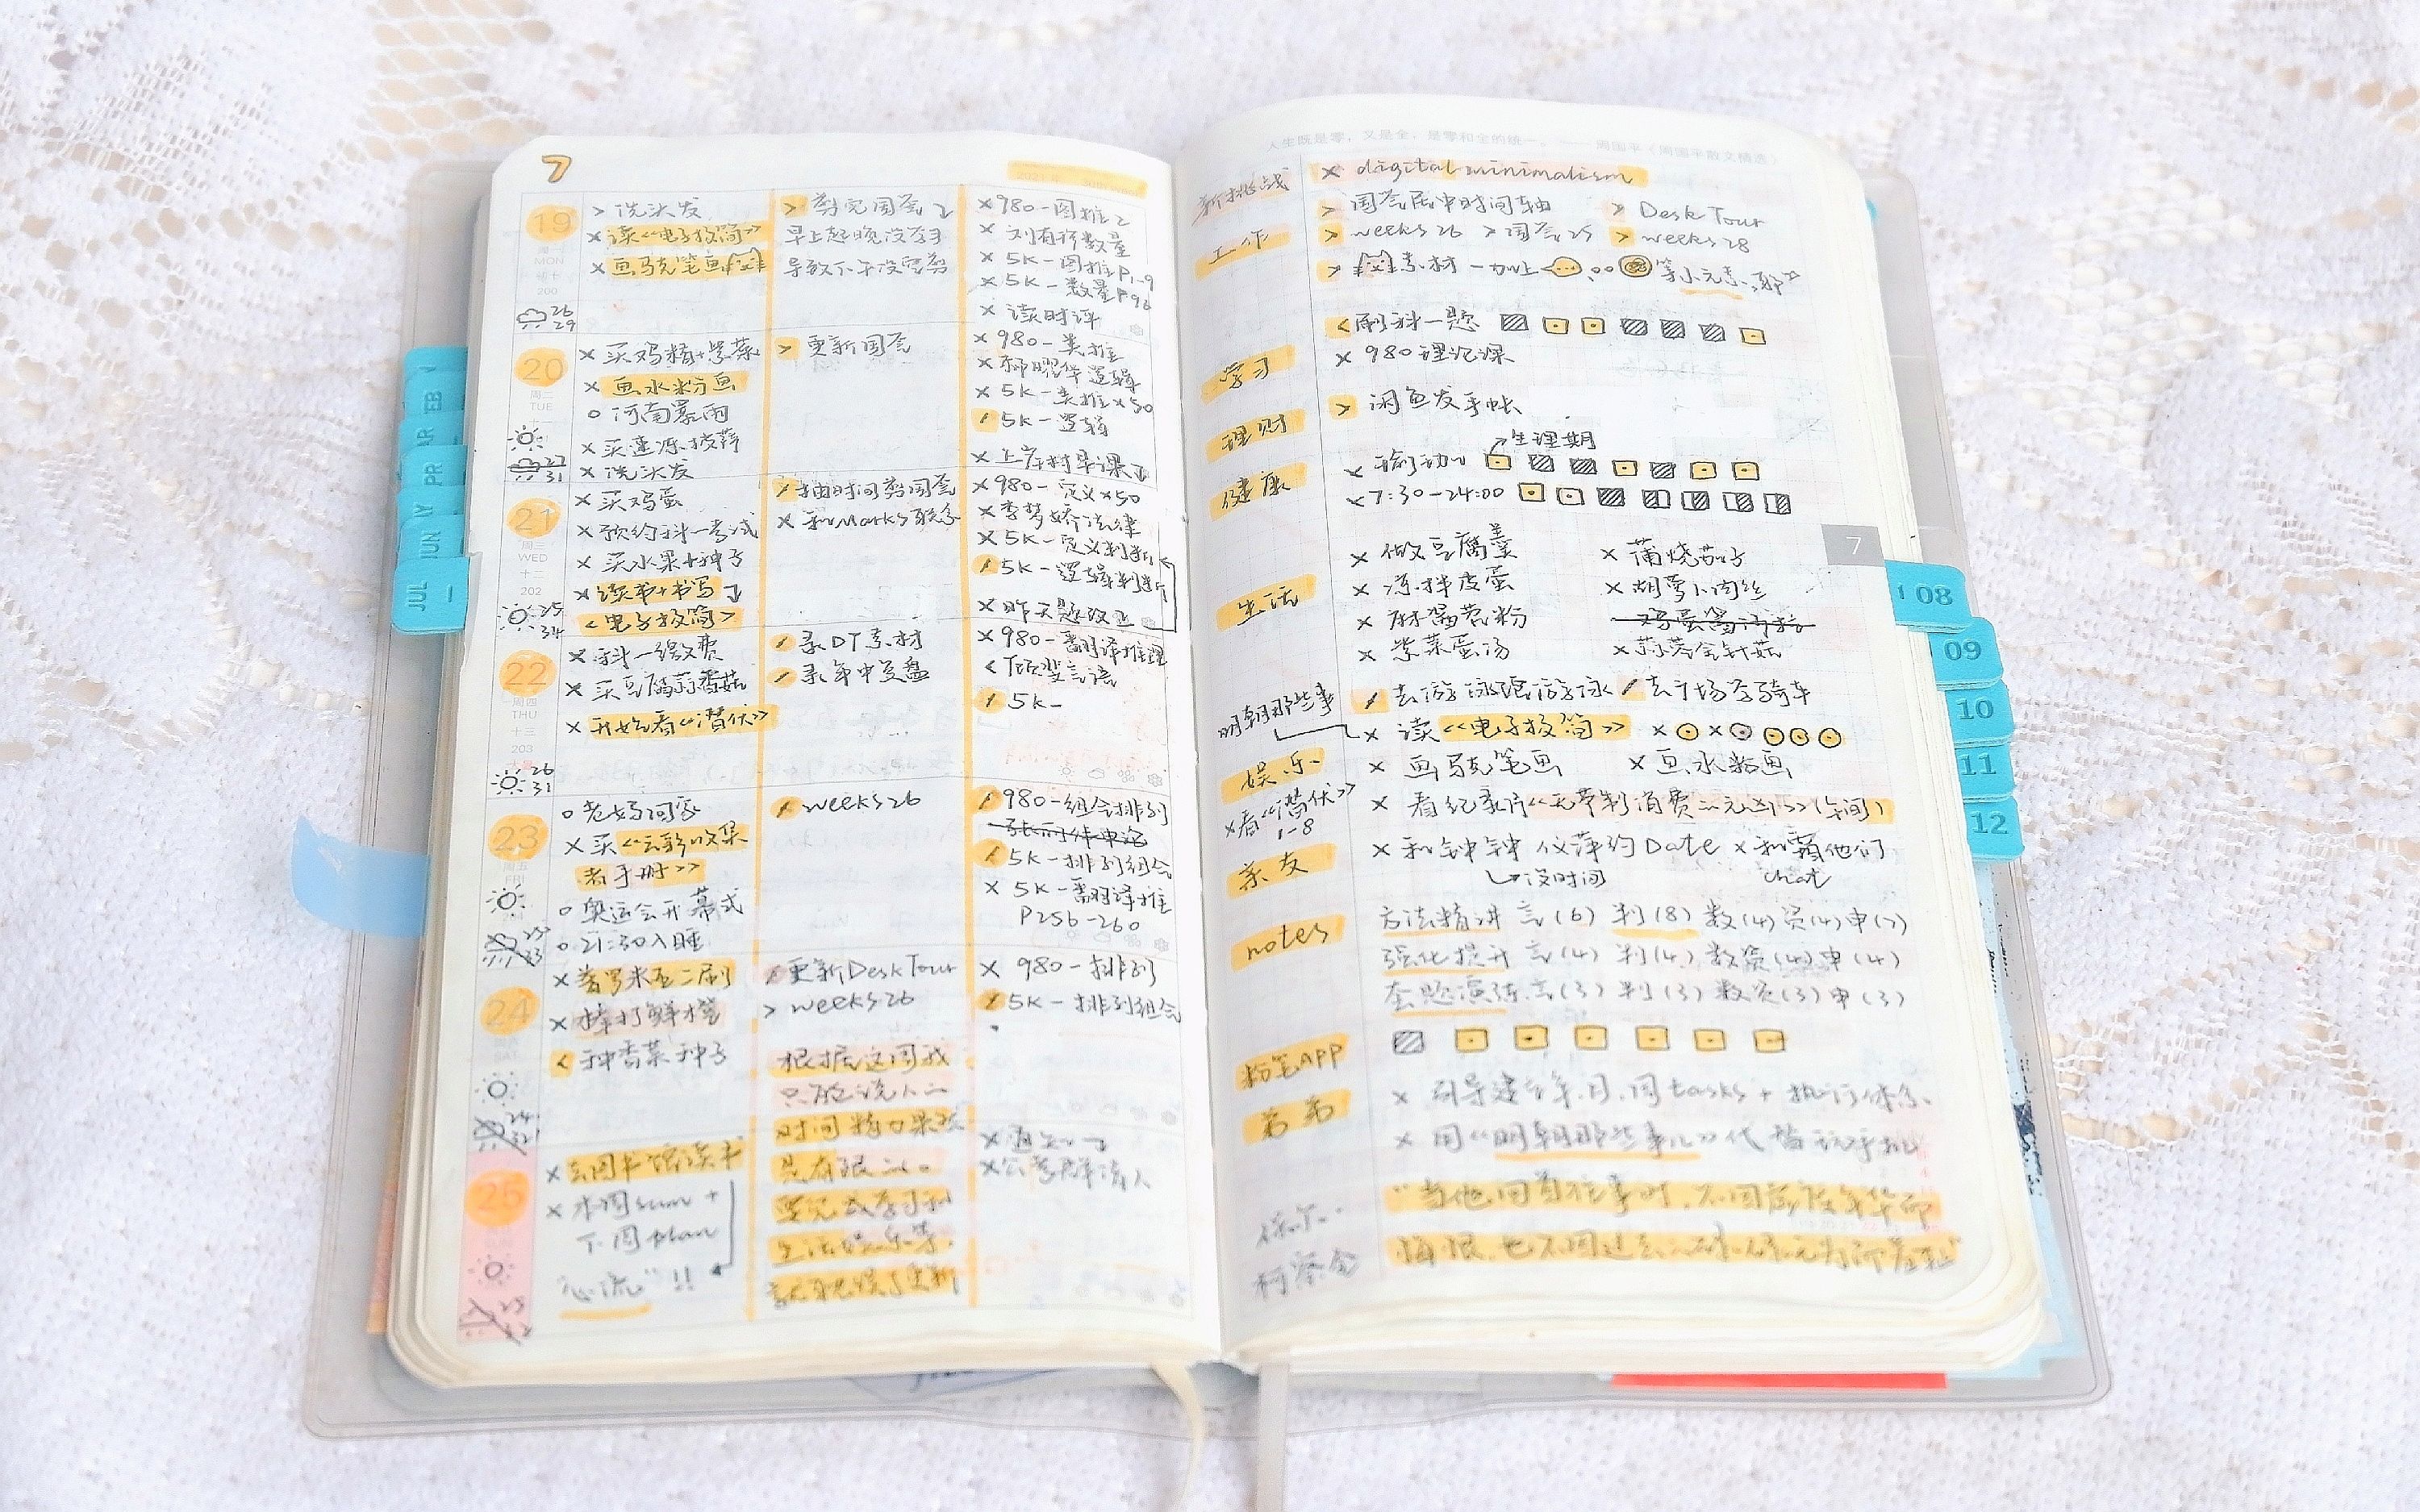 7
19
MON
200
> 洗头发
× 读《电子极简》
× 画马克笔画
26
29
> 剪完国荟2
早上起晚没学习
导致下午没空剪
×980-图推2
× 刘有珍数量
× 5K-图推P1-9
× 5K-数量P96
× 读时评
20
周二
TUE
× 买鸡精+紫菜
× 画水粉画
○ 河南暴雨
× 买速冻披萨
× 洗头发
27
31
> 更新国荟
× 980-类推
× 5K-类推×50
/ 5K-逻辑
21
WED
十二
202
× 买鸡蛋
× 预约科一考试
× 买水果+种子
× 读书+书写
<电子极简>
25
34
/ 抽时间剪国荟
× 和Marks联系
×980-定义×50
×李梦娇法律
×5K-定义判断
/5K-逻辑判断
× 昨天题改正
22
周四
THU
十三
203
× 科一缴费
× 买豆腐蒜香菇
× 开始看《潜伏》
26
31
/ 录DT素材
/ 录年中复盘
×980-翻译推理
/ 5K-
23
FRI
○ 老妈回家
× 买《云彩收集
者手册》
○ 奥运会开幕式
○ 21:30入睡
/ weeks26
/ 980-组合排列
/ 5K-排列组合
× 5K-翻译推
P256-260
24
SAT
×看罗米亚二刷
× 棒打鲜橙
< 种香菜种子
/ 更新Desk Tour
> weeks26
× 980-排列
/ 5K-排列组合
根据这周我
时间精力果然
只有限
25
×去图书馆读书
× 本周sum +
下周plan
"心流" !!
人生既是零，又是全，是零和全的统一。——周国平《周国平散文精选》
新挑战
× digital minimalism
工作
> 国荟居中时间轴 > Desk Tour
> weeks26 >国荟25 > weeks28
> 素材-加上 等小元素
学习
< 刷科一题
× 980理论课
理财
> 闲鱼发手帐
健康
生理期
× 瑜伽
×7:30-24:00
7
生活
× 做豆腐羹 × 蒲烧茄子
× 凉拌皮蛋 × 胡萝卜肉丝
× 紫菜蛋汤 × 蒜蓉金针菇
/ 去游泳馆游泳 / 去广场学骑车
明朝那些事
× 读《电子极简》
娱乐
× 画马克笔画 × 画水粉画
×看《潜伏》
1-8
× 看纪录片《无节制消费的元凶》(午间)
亲友
× 和钟钟 仪萍约Date × 和霸他们
没时间 chat
notes
方法精讲 言(6) 判(8) 数(4) 资(4) 申(7)
强化提升 言(4) 判(4) 数资(4) 申(4)
套题演练 言(3) 判(3) 数资(3) 申(3)
粉笔APP
弟弟
× 引导建立年.月.周tasks+执行体系.
× 用《明朝那些事儿》代替玩手机
保尔·
柯察金
"当他回首往事时，不因虚度年华而
悔恨
JUN
JUL
08
09
10
11
12